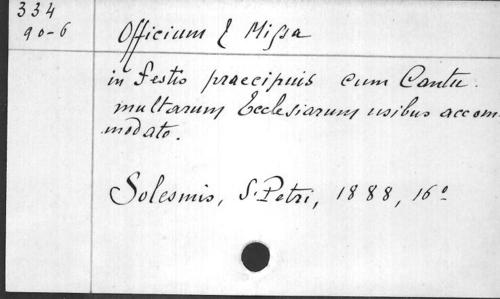 334
90-6
Officium & Missa
in Festis praecipuis cum Cantu
multarum Ecclesiarum usibus accom
modato.
Solesmis, S. Petri, 1888, 16º